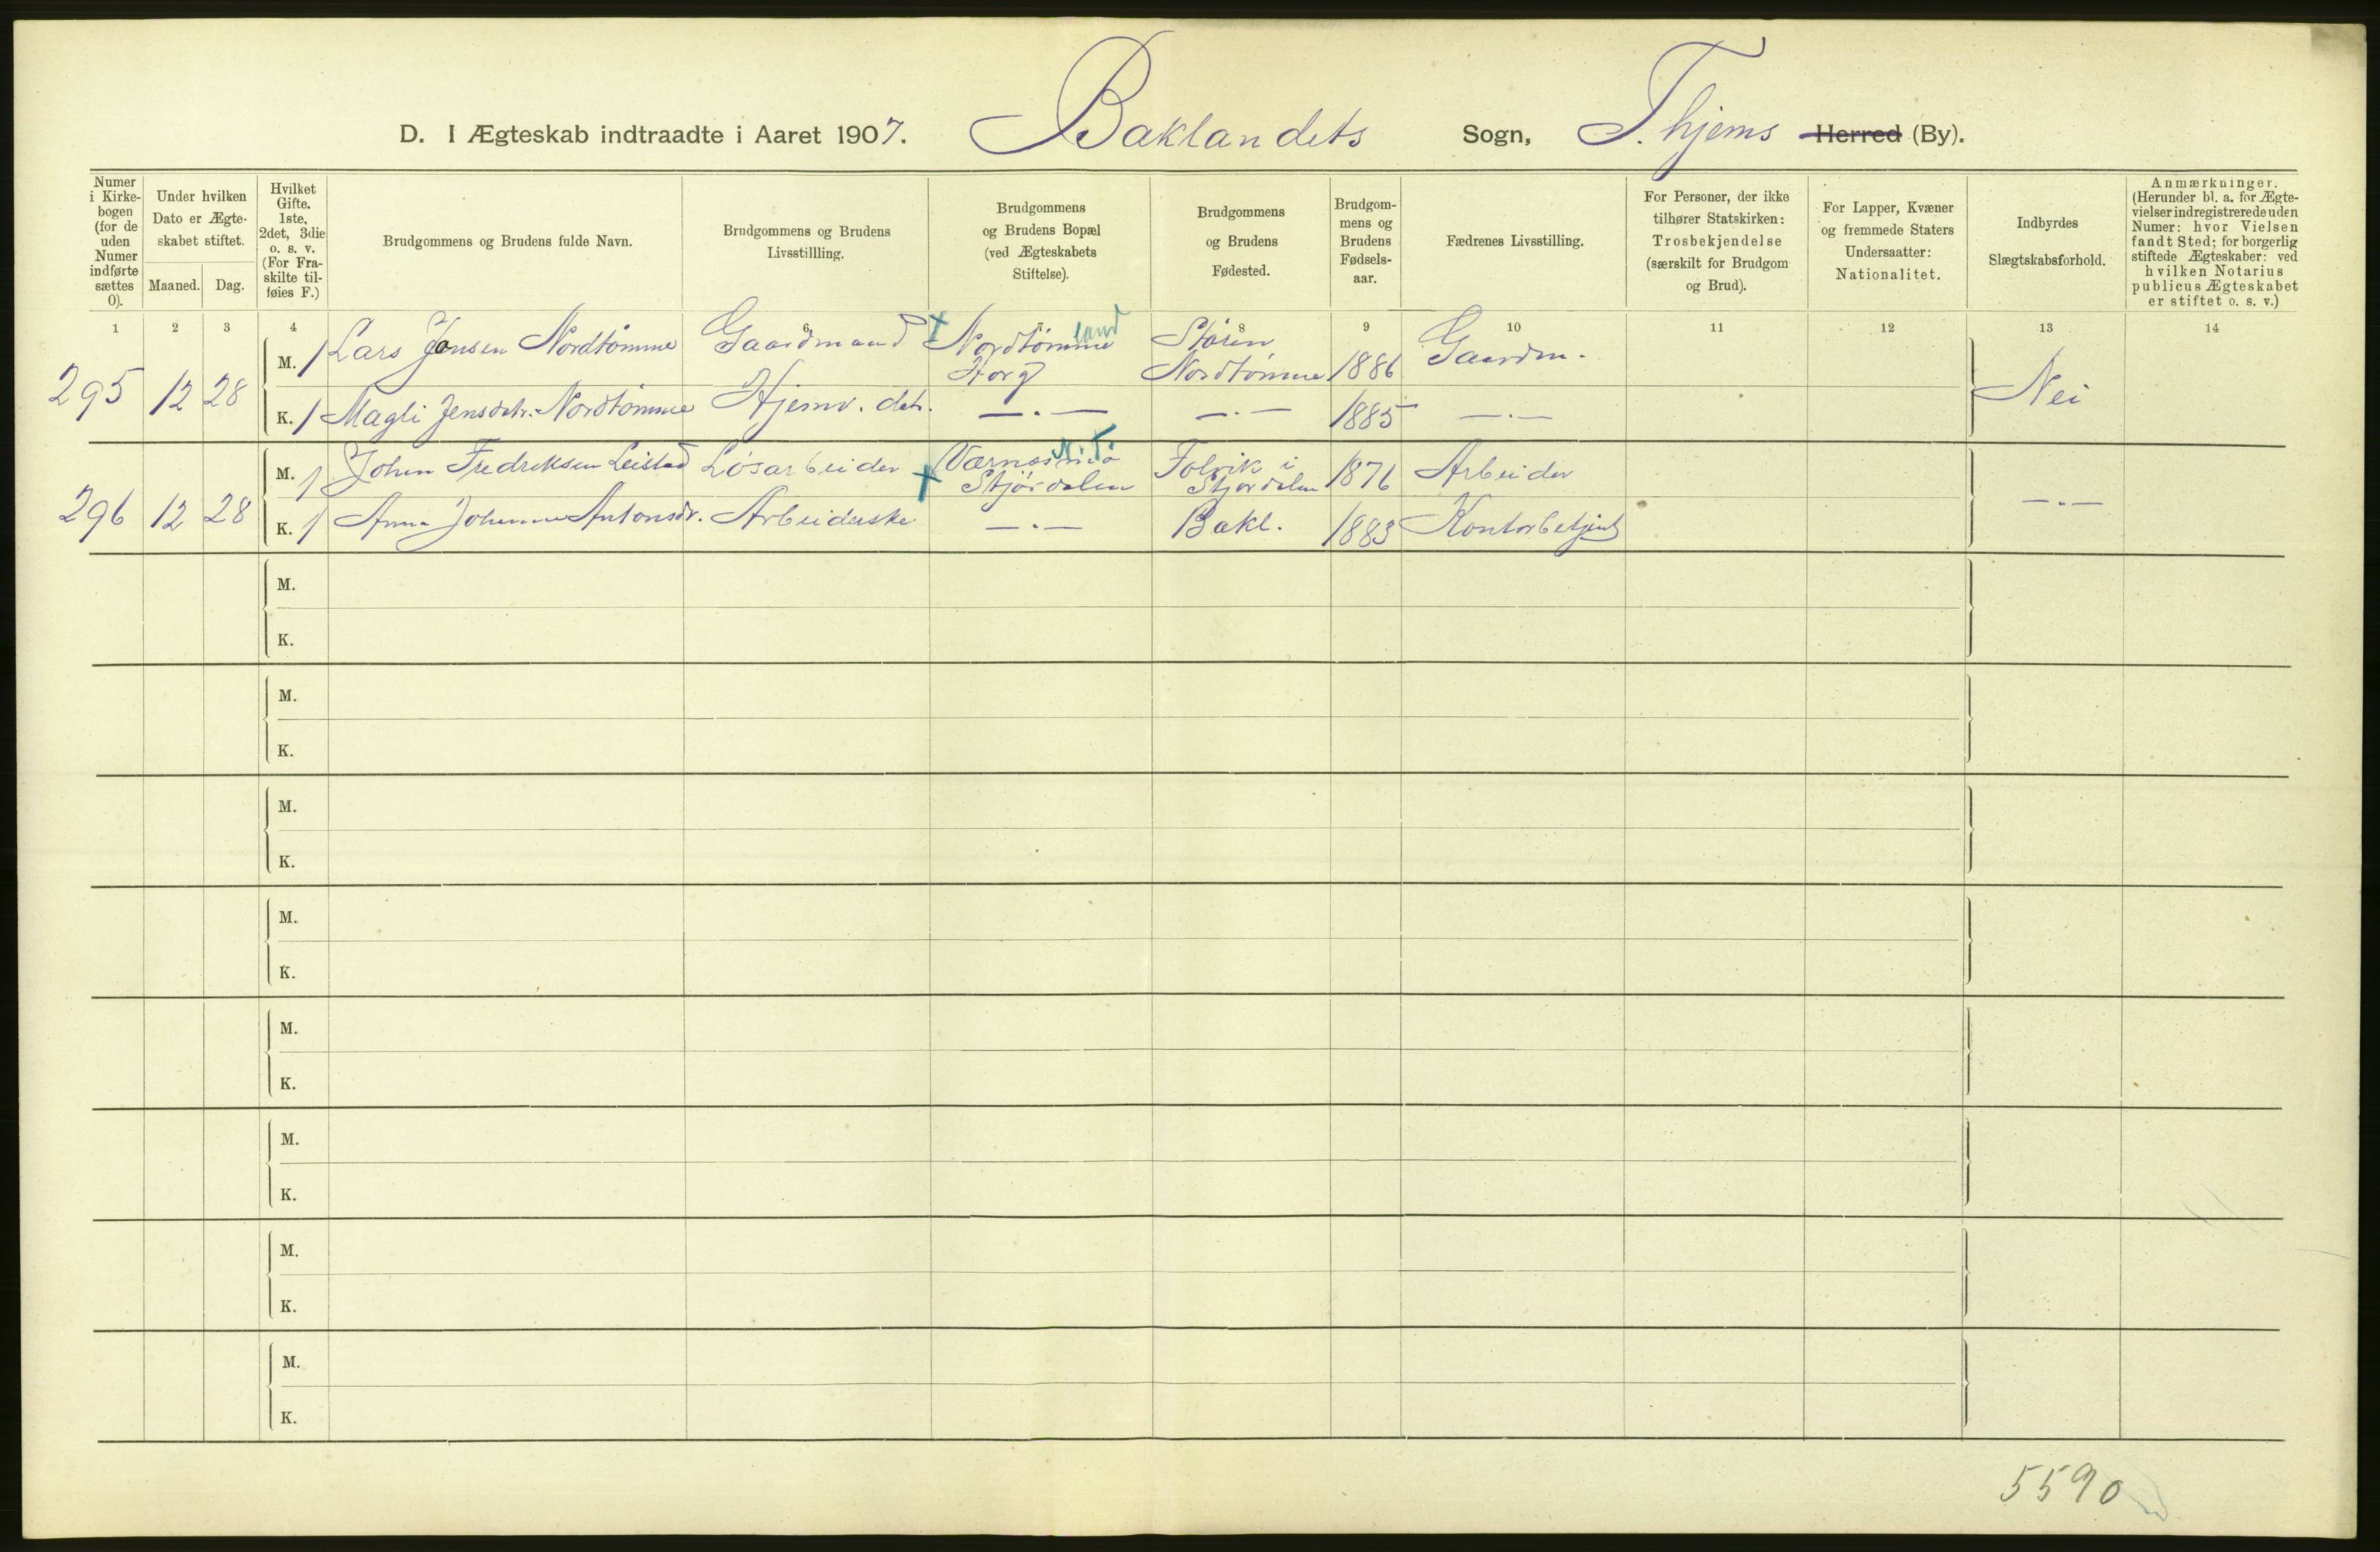 D. I Ægteskab indtraadte i Aaret 1907. Baklandets Sogn, T.hjems Herred (By).
Numer i Kirkebogen (for de uden Numer indførte sættes 0).
Under hvilken Dato er Ægteskabet stiftet.
Maaned. Dag.
Hvilket Gifte. 1ste, 2det, 3die o. s. v. (For Fraskilte tilføies F.)
Brudgommens og Brudens fulde Navn.
Brudgommens og Brudens Livsstillling.
Brudgommens og Brudens Bopæl (ved Ægteskabets Stiftelse).
Brudgommens og Brudens Fødested.
Brudgommens og Brudens Fødselsaar.
Fædrenes Livsstilling.
For Personer, der ikke tilhører Statskirken: Trosbekjendelse (særskilt for Brudgom og Brud).
For Lapper, Kvæner og fremmede Staters Undersaatter: Nationalitet.
Indbyrdes Slægtskabsforhold.
Anmærkninger. (Herunder bl. a. for Ægtevielser indregistrerede uden Numer: hvor Vielsen fandt Sted; for borgerlig stiftede Ægteskaber: ved hvilken Notarius publicus Ægteskabet er stiftet o. s. v.)
1 2 3 4 6 8 9 10 11 12 13 14
295 12 28 M. 1 Lars Jonsen Nordtømme Gaardmand + Nordtømme land Horg Støren Nordtømme 1886 Gaardm. Nei
K. 1 Magli Jensdtr. Nordtømme Hjemv. dtr. —.— —.— 1885 —.—
296 12 28 M. 1 Johan Fredriksen Leistad Løsarbeider + Værnes Stjørdalen N. T. i Stjørdalen 1876 Arbeider —.—
K. 1 Anna Johanna Antonsdr. Arbeiderske —.— Bakl. 1883 Kontorbetjent
M.
K.
M.
K.
M.
K.
M.
K.
M.
K.
M.
K.
M.
K.
M.
K.
5590